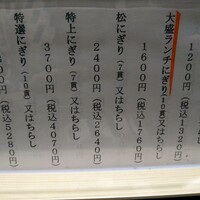 1200円(税込1320円)
大盛ランチにぎり(10貫)又はちらし
1600円(税込1760円)
松にぎり(7貫)又はちらし
2400円(税込2640円)
特上にぎり(7貫)又はちらし
3700円(税込4070円)
特選にぎり(10貫)又はちらし
(税込5280円)